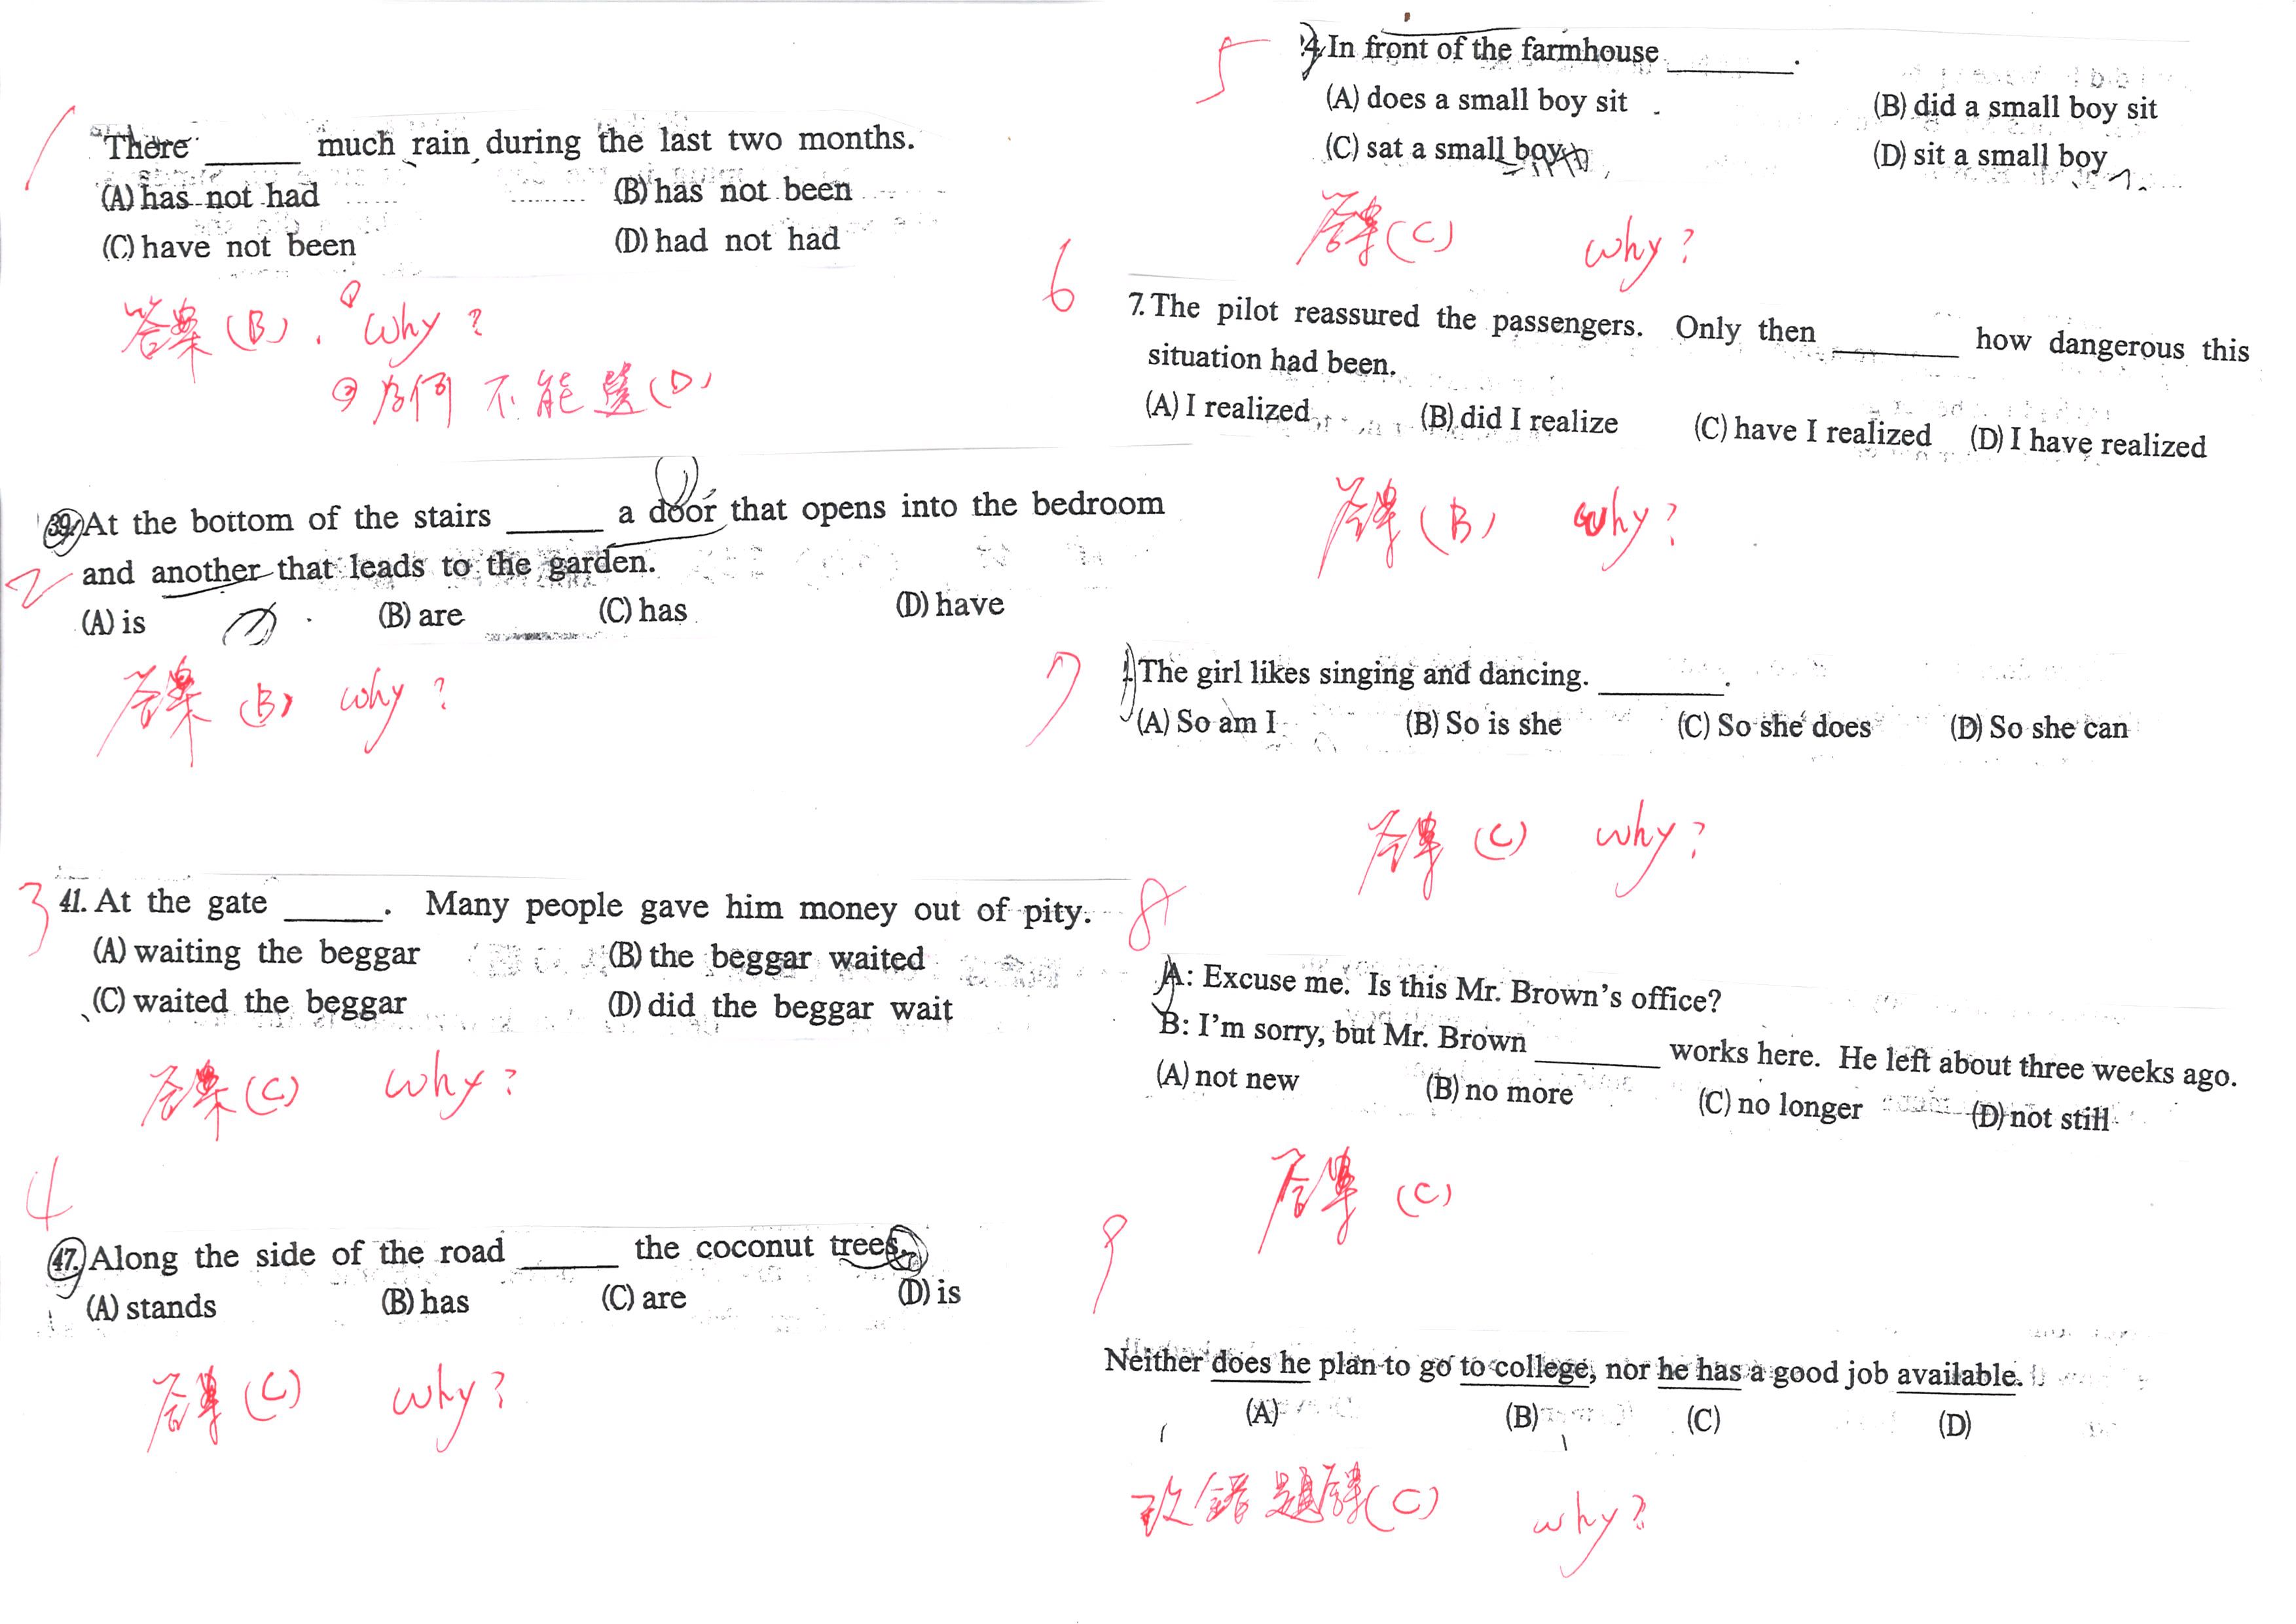 1
There _____ much rain during the last two months.
(A) has not had (B) has not been
(C) have not been (D) had not had
答案(B). ① why?
② 為何不能選(D)
2
39. At the bottom of the stairs _____ a door that opens into the bedroom
and another that leads to the garden.
(A) is (B) are (C) has (D) have
答案(B) why?
3
41. At the gate _____. Many people gave him money out of pity.
(A) waiting the beggar (B) the beggar waited
(C) waited the beggar (D) did the beggar wait
答案(C) why?
4
47. Along the side of the road _____ the coconut trees.
(A) stands (B) has (C) are (D) is
答案(C) why?
5
4. In front of the farmhouse _____.
(A) does a small boy sit (B) did a small boy sit
(C) sat a small boy (D) sit a small boy
答案(C) why?
6
7. The pilot reassured the passengers. Only then _____ how dangerous this
situation had been.
(A) I realized (B) did I realize (C) have I realized (D) I have realized
答案(B) why?
7
The girl likes singing and dancing. _____.
(A) So am I (B) So is she (C) So she does (D) So she can
答案(C) why?
8
A: Excuse me. Is this Mr. Brown's office?
B: I'm sorry, but Mr. Brown _____ works here. He left about three weeks ago.
(A) not new (B) no more (C) no longer (D) not still
答案(C)
9
Neither does he plan to go to college, nor he has a good job available.
(A) (B) (C) (D)
改錯題答案(C) why?